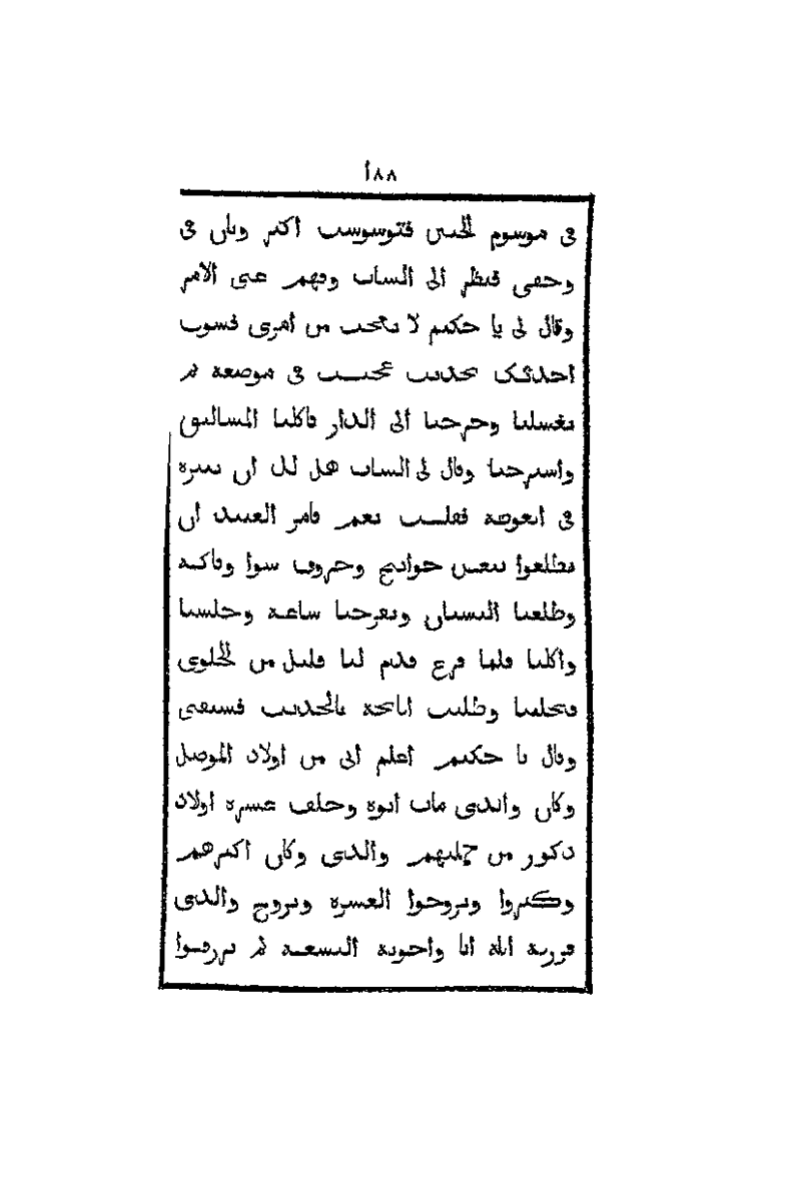 ١٨٨
فى موسوم الحسن فتوسوست اكثر وبان فى
وجهى فنظر الى الشاب وفهم عنى الامر
وقال لى يا حكيم لا تعجب من امرى فسوف
احدثك بحديث عجيب فى موضعه ثم
تغسلنا وخرجنا الى الدار فاكلنا المسالىق
واسترحنا وقال لى الشاب هل لك ان تسره
فى الغوطة فقلت نعم فامر العبيد ان
يطلعوا ببعض حوايج وخروف شوا وفاكهة
وطلعنا البستان وتفرجنا ساعة وجلسنا
واكلنا فلما فرغ قدم لنا قليل من الحلوى
فتحلينا وطلبت افاتحه بالحديث فسبقنى
وقال يا حكيم اعلم انى من اولاد الموصل
وكان والدى مات ابوه وخلف عشره اولاد
دكور من جملتهم والدى وكان اكبرهم
وكبروا وتزوجوا العشره وتزوج والدى
فرزقه الله انا واخوته التسعة لم يرزقوا